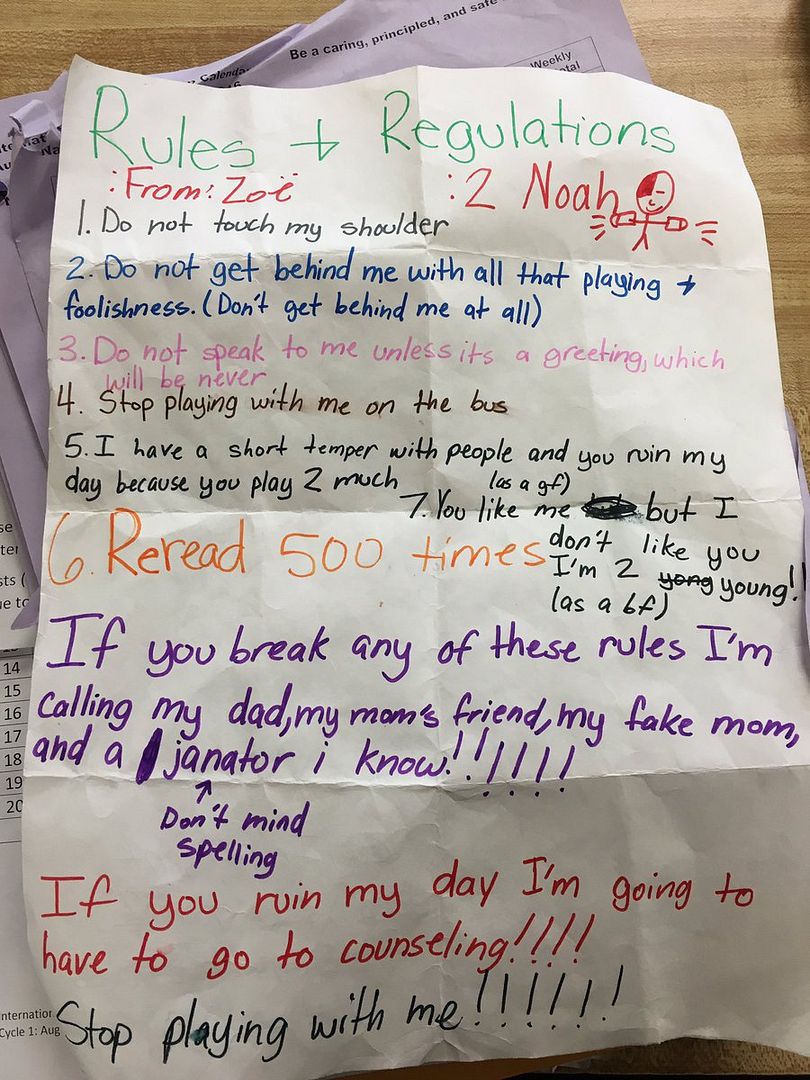 Be a caring, principled, and safe
Weekly
Rules + Regulations
:From: Zoë
:2 Noah
1. Do not touch my shoulder
2. Do not get behind me with all that playing +
foolishness. (Don't get behind me at all)
3. Do not speak to me unless its a greeting, which
will be never
4. Stop playing with me on the bus
5. I have a short temper with people and you ruin my
day because you play 2 much
(as a gf)
7. You like me but I
don't like you
I'm 2 yong young!!
(as a bf)
6. Reread 500 times
If you break any of these rules I'm
calling my dad, my mom's friend, my fake mom,
and a janator i know!!!!!!!
Don't mind
spelling
If you ruin my day I'm going to
have to go to counseling!!!!
Stop playing with me!!!!!!!
14
15
16
17
18
19
20
Cycle 1: Aug